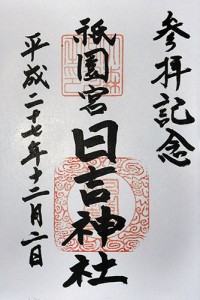 参拝記念
祇園宮
日吉神社
平成二十七年十二月二日